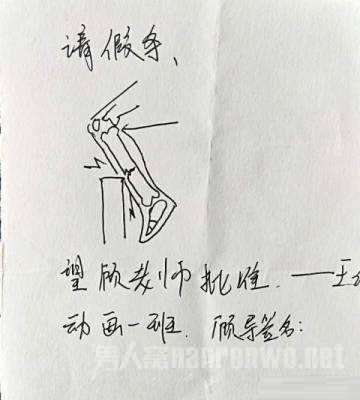 请假条、
望顾教师批准.——王
动画一班. 顾导签名:
男人窝 nanrenwo.net